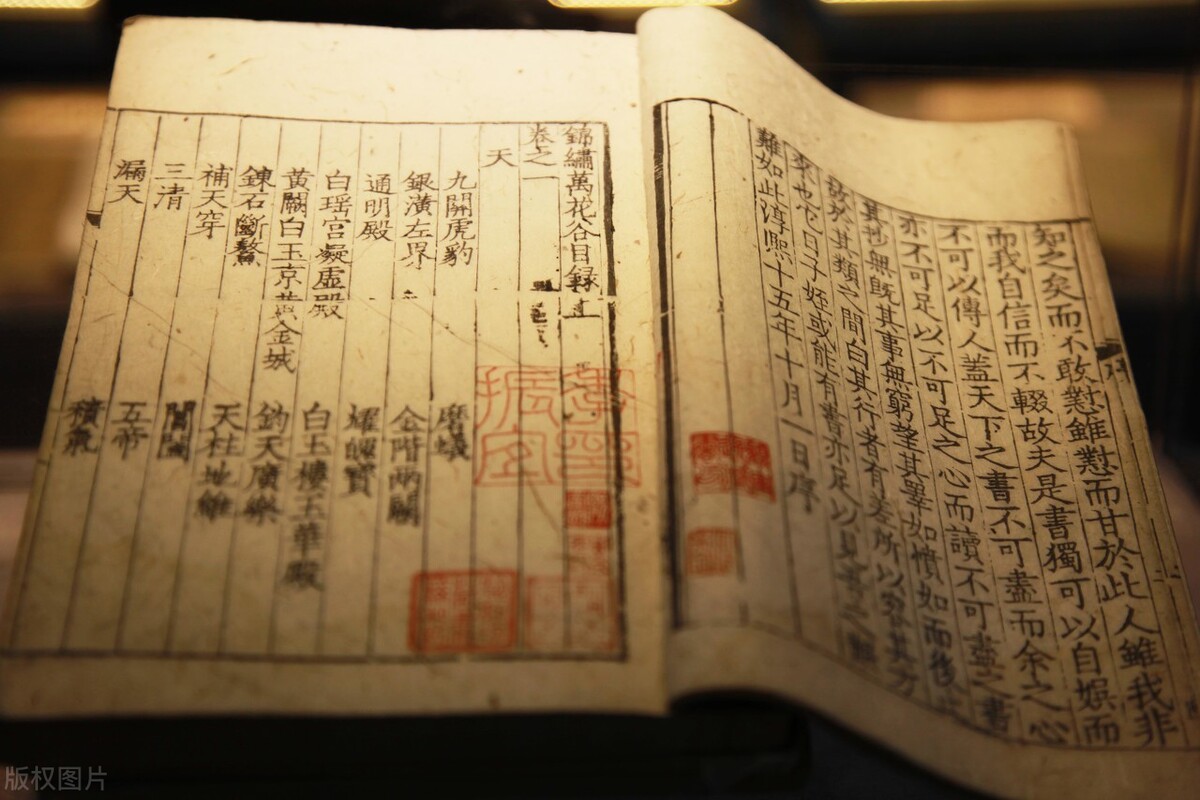 知之矣而不敢愆雖愆而甘於此人雖我非
而我自信而不輟故夫是書獨可以自娛而
不可以傳人蓋天下之書不可盡而余之心
亦不可足以不可足之心而讀不可盡之書
其抄無既其事無窮望其畢如償如而後
故於其類之間白其行者有差所以容其方
來也它日子姪或能有書亦足以見書之
難如此淳熙十五年十月一日序
錦繡萬花谷目錄
卷之一
天
九關虎豹 磨蟻
銀潢左界 金階兩闕
通明殿 耀魄寶
白瑤宮凝虛殿 白玉樓玉華殿
黃闕白玉京黃金城 鈞天廣樂
鍊石斷鰲 天柱地維
補天穿 閶闔
三清 五帝
漏天 積氣
振宜
版权图片